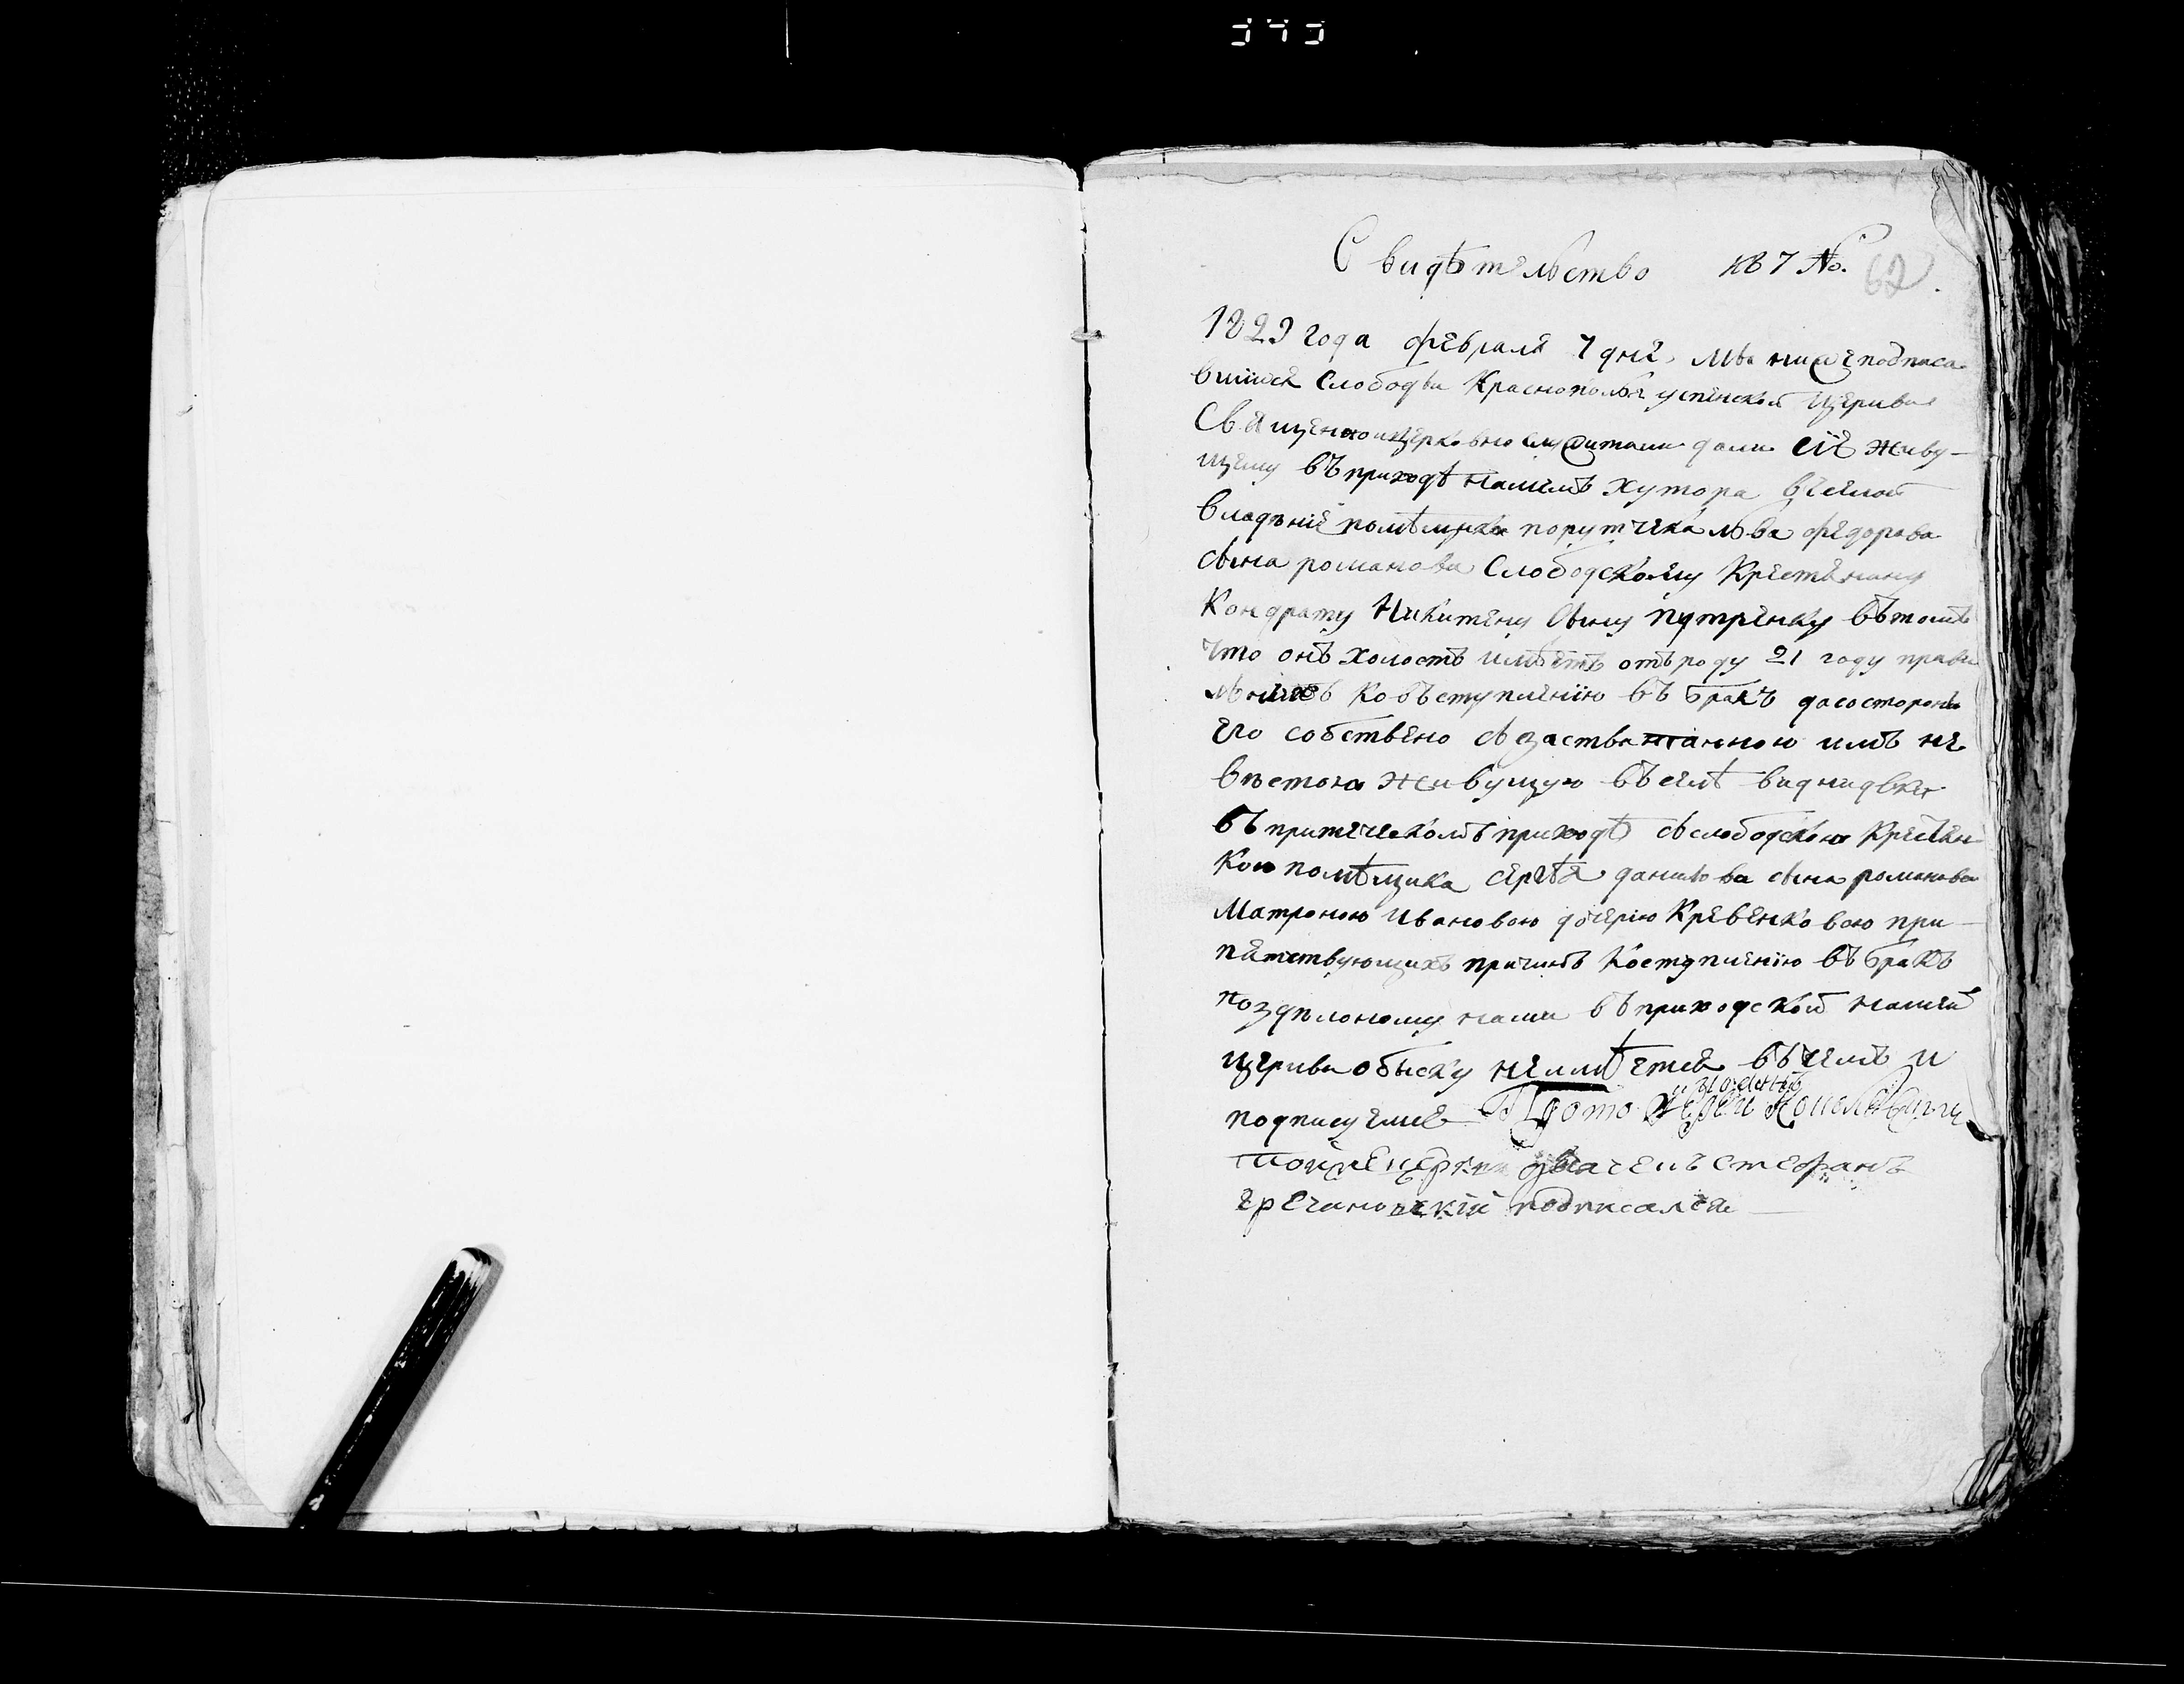 Свидѣтельство къ 7 No. 62
1829 года февраля 7 дня, мы нижеподписа
вшиися Слободы Краснополья успенской церкви
Священно и церковно служители дали сіе живу-
щему въ приходѣ нашемъ хутора
владѣнія помѣщика порутчека льва федорова
сына романова Слободскому Крестянину
Кондрату Никитену сыну путренку вътомъ
что онъ холостъ имѣетъ отъ роду 21 году прави
льныхъ ко въступленію въ бракъ дасостороны
его собствено съ засватанною имъ не
вѣстою живущую въ селѣ
въ приходѣ съ слободскою Крестян
кою помѣщика сергѣя данилова сына романова
Матроною Ивановою дочерію Кревенковою при-
пятствующихъ причинъ Коступленію въ бракъ
поздѣлоному нами въ приходской нашей
церкви обыску неимѣется въ чемъ и
подписуемся Прото Іерей
тойже церкви дьячекъ стефанъ
гречановскій подписался